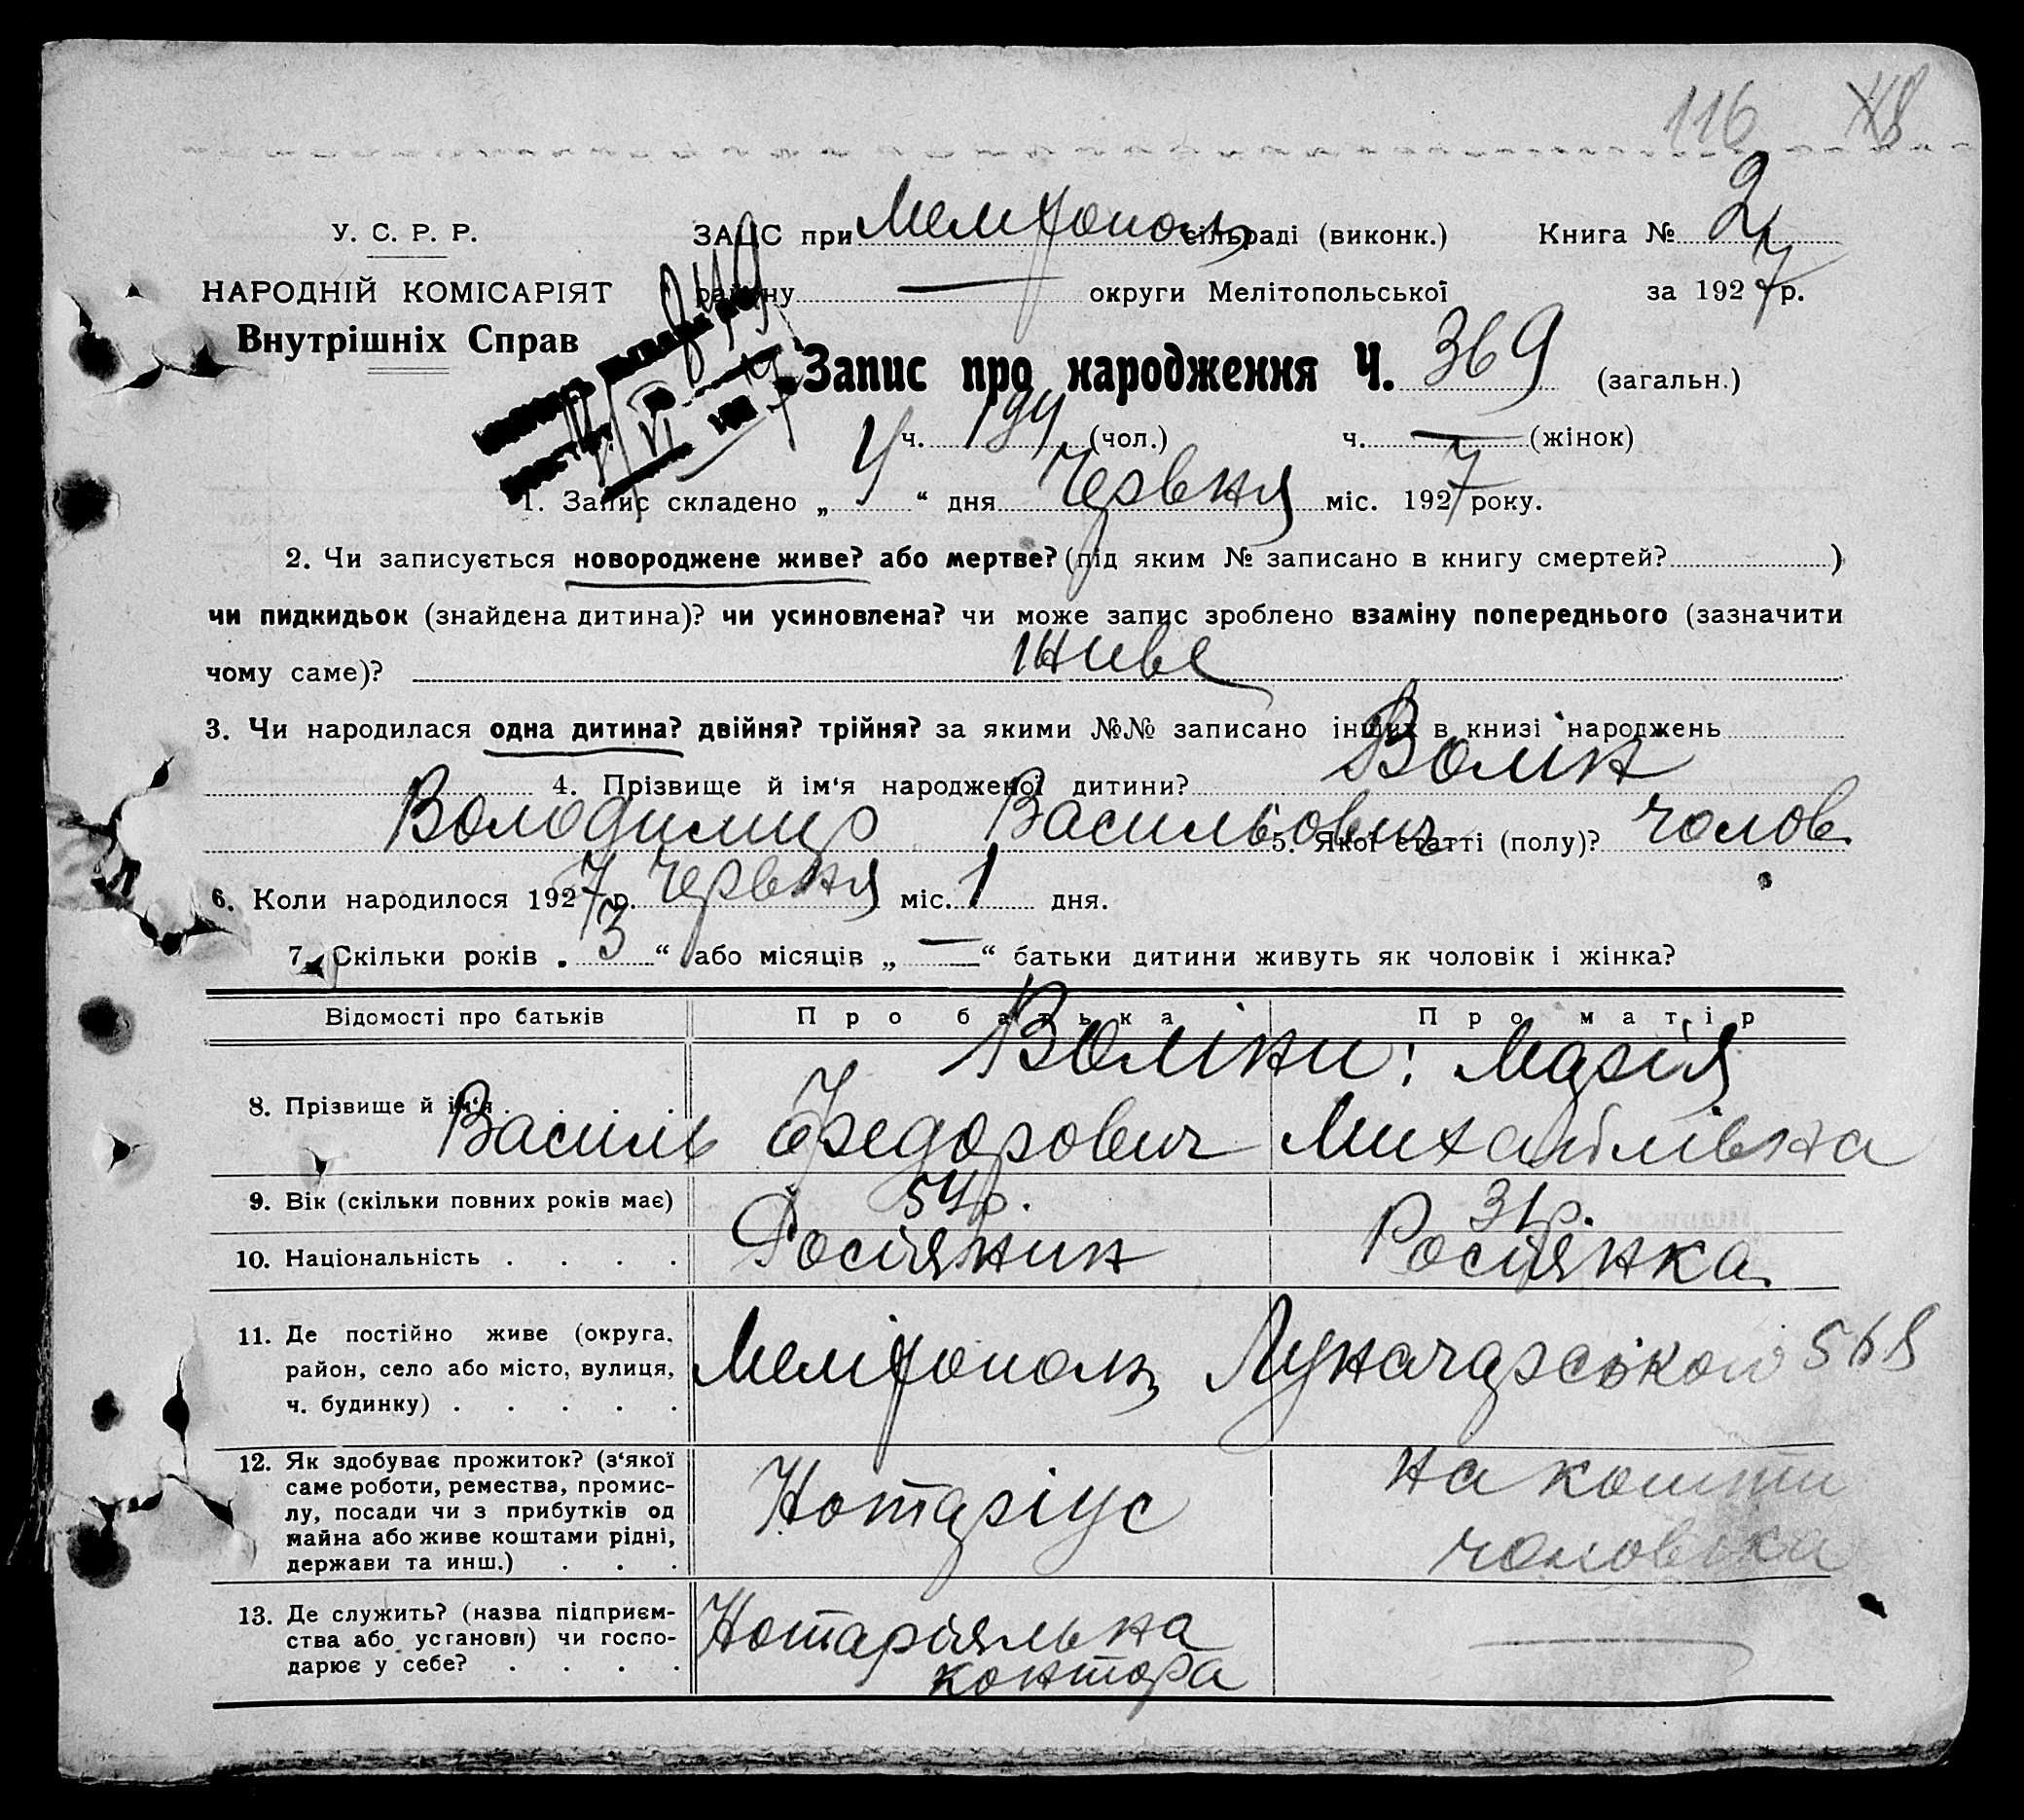 116
У. С. Р. Р.
ЗАЦС при Мелітополь сільраді (виконк.) Книга № 2
НАРОДНІЙ КОМІСАРІЯТ
району — округи Мелітопольської за 1927 р.
Внутрішніх Справ
Запис про народження Ч. 369 (загальн.)
ч. 194 (чол.) ч. — (жінок)
1. Запис складено „ 4 “ дня Червня міс. 1927 року.
2. Чи записується новороджене живе? або мертве? (під яким № записано в книгу смертей? )
чи пидкидьок (знайдена дитина)? чи усиновлена? чи може запис зроблено взаміну попереднього (зазначити
чому саме)? живе
3. Чи народилася одна дитина? двійня? трійня? за якими №№ записано інших в книзі народжень
4. Прізвище й ім‘я народженої дитини? Волин
Володимир Васильович 5. Якої статті (полу)? чолов.
6. Коли народилося 1927 р. Червня міс. 1 дня.
7. Скільки років „ 3 “ або місяців „ — “ батьки дитини живуть як чоловік і жінка?
Відомості про батьків Про батька Про матір
Волини: Марія
8. Прізвище й ім‘я . . . . Василь Федорович Михайлівна
9. Вік (скільки повних років має) 54 р. 31 р.
10. Національність . . . . Росіянин Росіянка.
11. Де постійно живе (округа,
район, село або місто, вулиця,
ч. будинку) . . . . . Мелітополь, Луначарської 568
12. Як здобуває прожиток? (з‘якої
саме роботи, ремества, промис-
лу, посади чи з прибутків од
майна або живе коштами рідні,
держави та инш.) . . . Нотаріус на кошти
чоловіка
13. Де служить? (назва підприєм-
ства або установи) чи госпо-
дарює у себе? . . . . Нотаріяльна
контора —